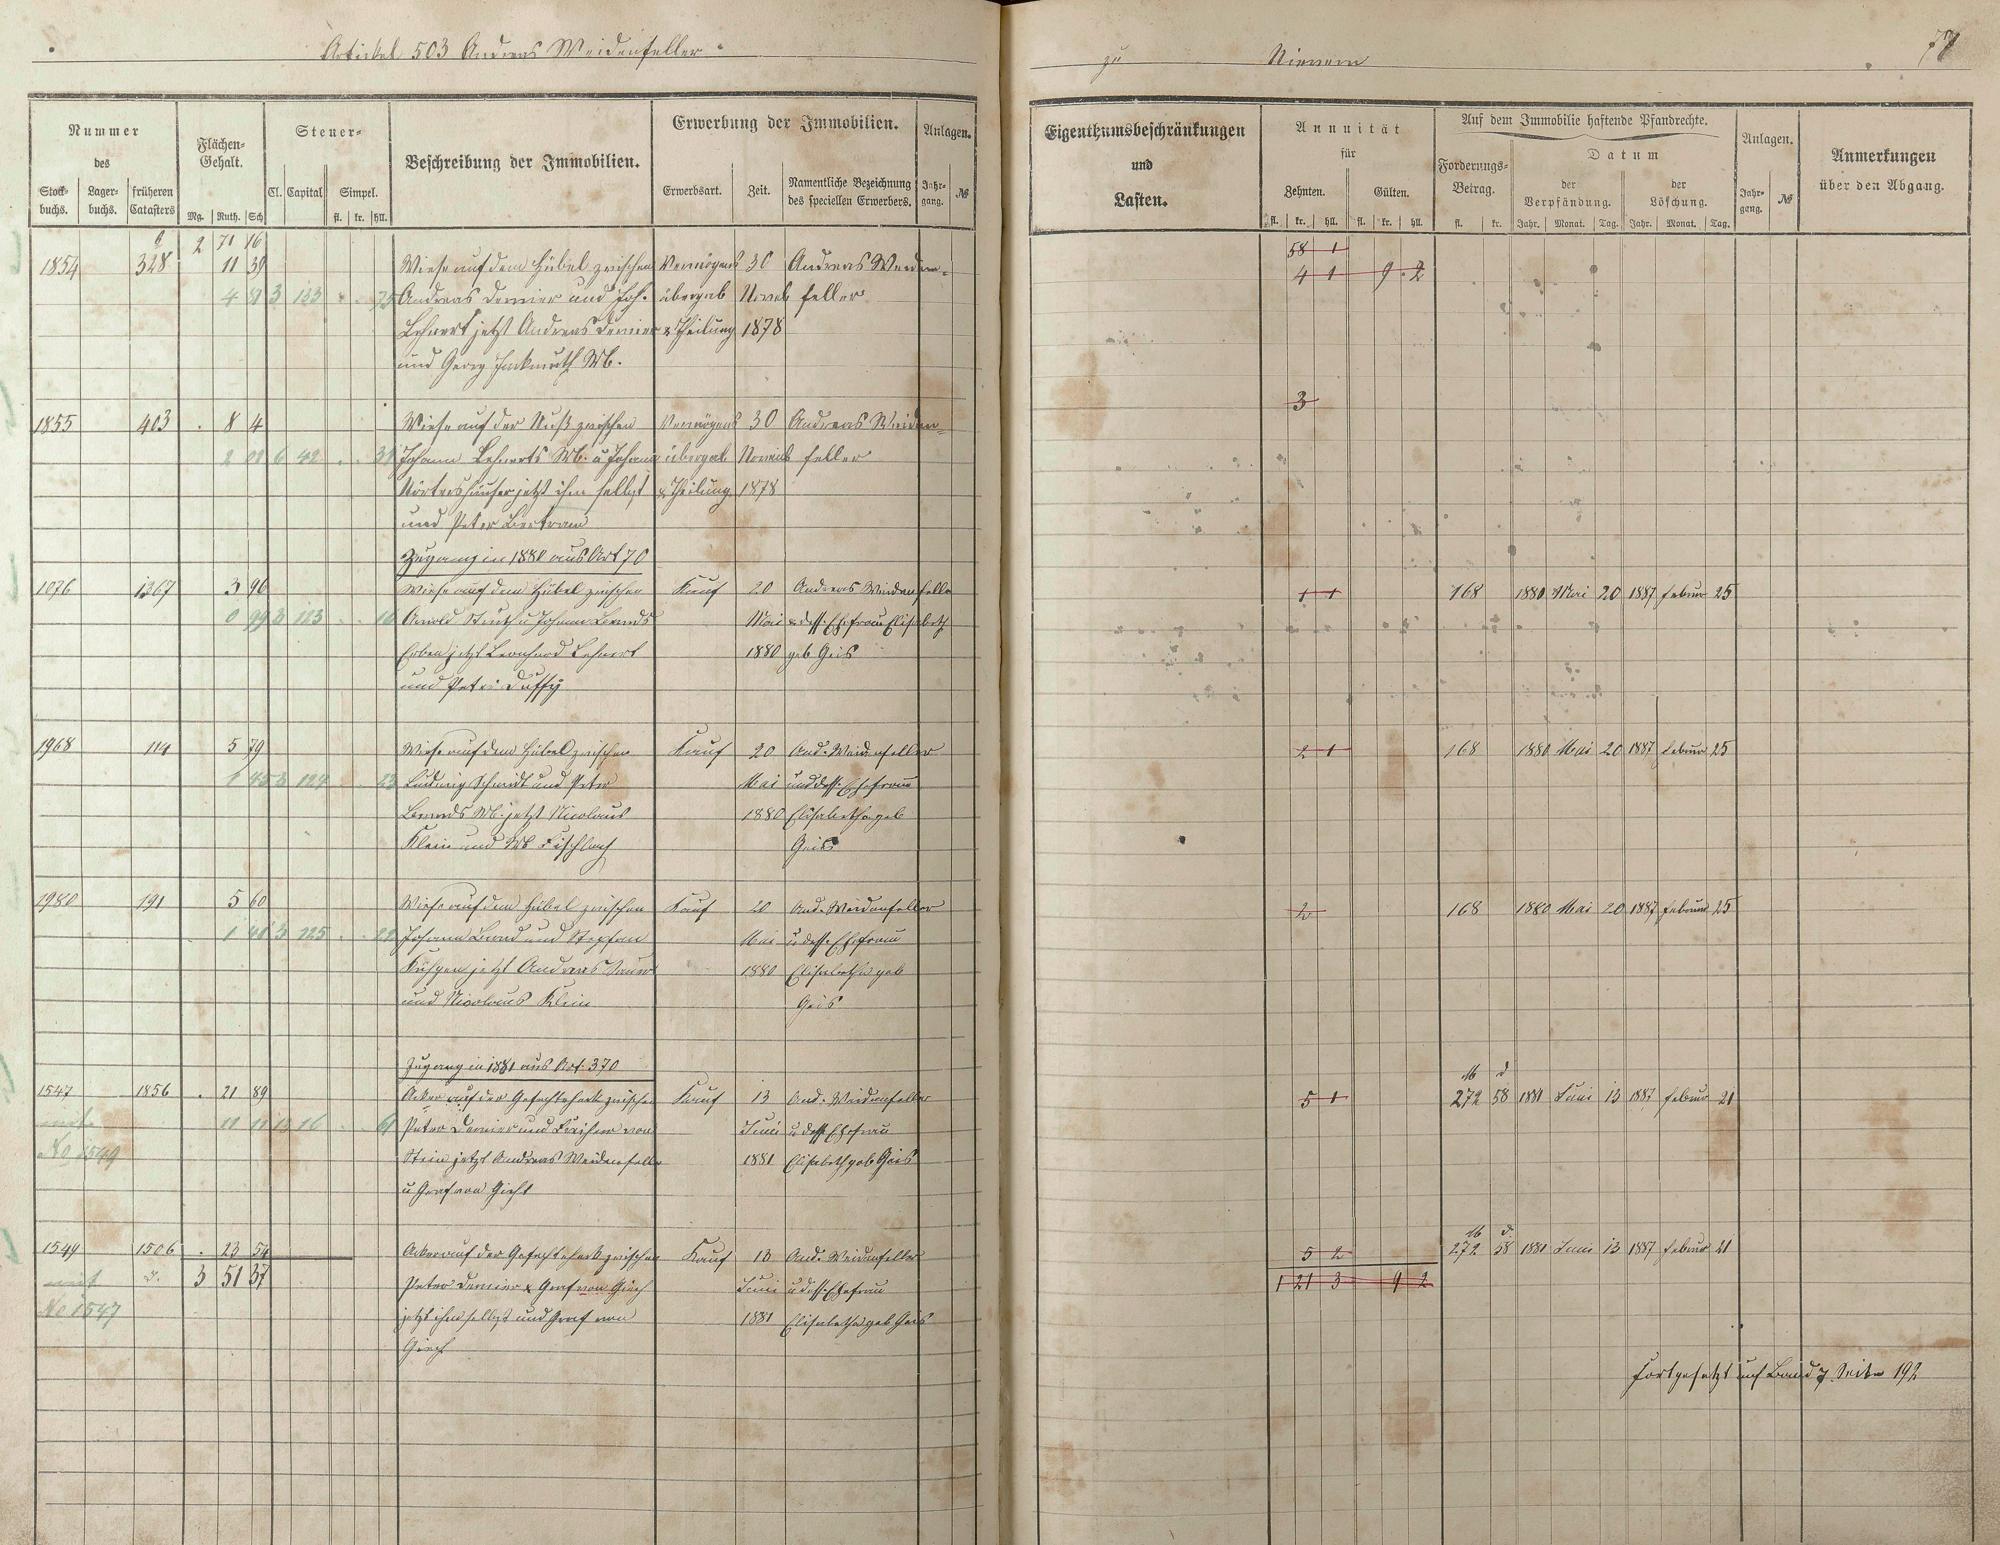 Artickel 503 Andreas Weidenfeller
zu Nievern
77
Nummer
des
Stock-buchs. Lager-buchs. früheren Catasters
Flächen-Gehalt.
Mg. Ruth. Sch
Steuer-
Cl. Capital Simpel.
fl. kr. hll.
Beschreibung der Immobilien.
Erwerbung der Immobilien.
Erwerbsart. Zeit. Namentliche Bezeichnung des speciellen Erwerbers.
Anlagen.
Jahr-gang. №
Eigenthumsbeschränkungen
und
Lasten.
Annuität
für
Zehnten. Gülten.
fl. kr. hll. fl. kr. hll.
Auf dem Immobilie haftende Pfandrechte.
Forderungs-Betrag.
fl. kr.
Datum
der Verpfändung. der Löschung.
Jahr. Monat. Tag. Jahr. Monat. Tag.
Anlagen.
Jahr-gang. №
Anmerkungen
über den Abgang.
2 71 16 58 1
1854 328 11 39 Wiese auf dem Hübel zwischen Vermögens 30 Andreas Weiden= 4 1 9 2
3 133 75 Andreas Demier und Joh. übergab Noveb feller
Lehnert jetzt Andreas Demier & Theilung 1878
und Georg
3
1855 403 . 8 4 Wiese auf der Nuß zwischen Vermögens 30 Andreas Weiden=
6 42 Johann Lehnerts Wb. u Johann übergab Novemb feller
Nörtershäuser jetzt ihm selbst & Theilung 1878
und Peter Bertram
Zugang in 1880 aus Art 70
1076 1367 3 96 Wiese auf dem Hübel zwischen Kauf 20 Andreas Weidenfeller 1 1 168 1880 Mai 20 1887 Februr 25
0 99 3 123 16 Arnold u Johann Bernds Mai & dess. Ehefrau Elisabeth
Erben jetzt Leonhard Lehnert 1880 geb Geis
und Peter Duffy
1968 114 5 79 Wiese auf dem Hübel zwischen Kauf 20 And. Weidenfeller 2 1 168 1880 Mai 20 1887 Februr 25
1 45 3 124 23 Ludwig Schmidt und Peter Mai und dess. Ehefrau
Bernds Wb. jetzt Nicolaus 1880 Elisabetha geb
Klein und Wb Fischbach Geis
1980 191 5 60 Wiese auf dem Hübel zwischen Kauf 20 And. Weidenfeller 2 168 1880 Mai 20 1887 Februr 25
1 40 3 125 22 Johann Bernd und Stephan Mai u dess. Ehefrau
jetzt Andreas 1880 Elisabetha geb
und Nicolaus Klein Geis
Zugang in 1881 aus Art. 370
M d
1547 1856 . 21 89 Acker auf der zwischen Kauf 13 And. Weidenfeller 5 1 272 58 1881 Juni 13 1887 Februr 21
mit 61 Peter Demier und Freiherr von Juni u dess. Ehefrau
No 1549 Stein jetzt Andreas Weidenfeller 1881 Elisabeth geb Geis
u Graf von Giech
M d
1549 1506 . 23 54 Acker auf der zwischen Kauf 13 And. Weidenfeller 5 2 272 58 1881 Juni 13 1887 Februr 21
mit 3 51 37 Peter Demier & Graf von Giech Juni u dess. Ehefrau 1 21 3 9 2
No 1547 jetzt ihm selbst und Graf von 1881 Elisabetha geb Geis
Giech
Fortgesetzt auf Band 7 Seite 192